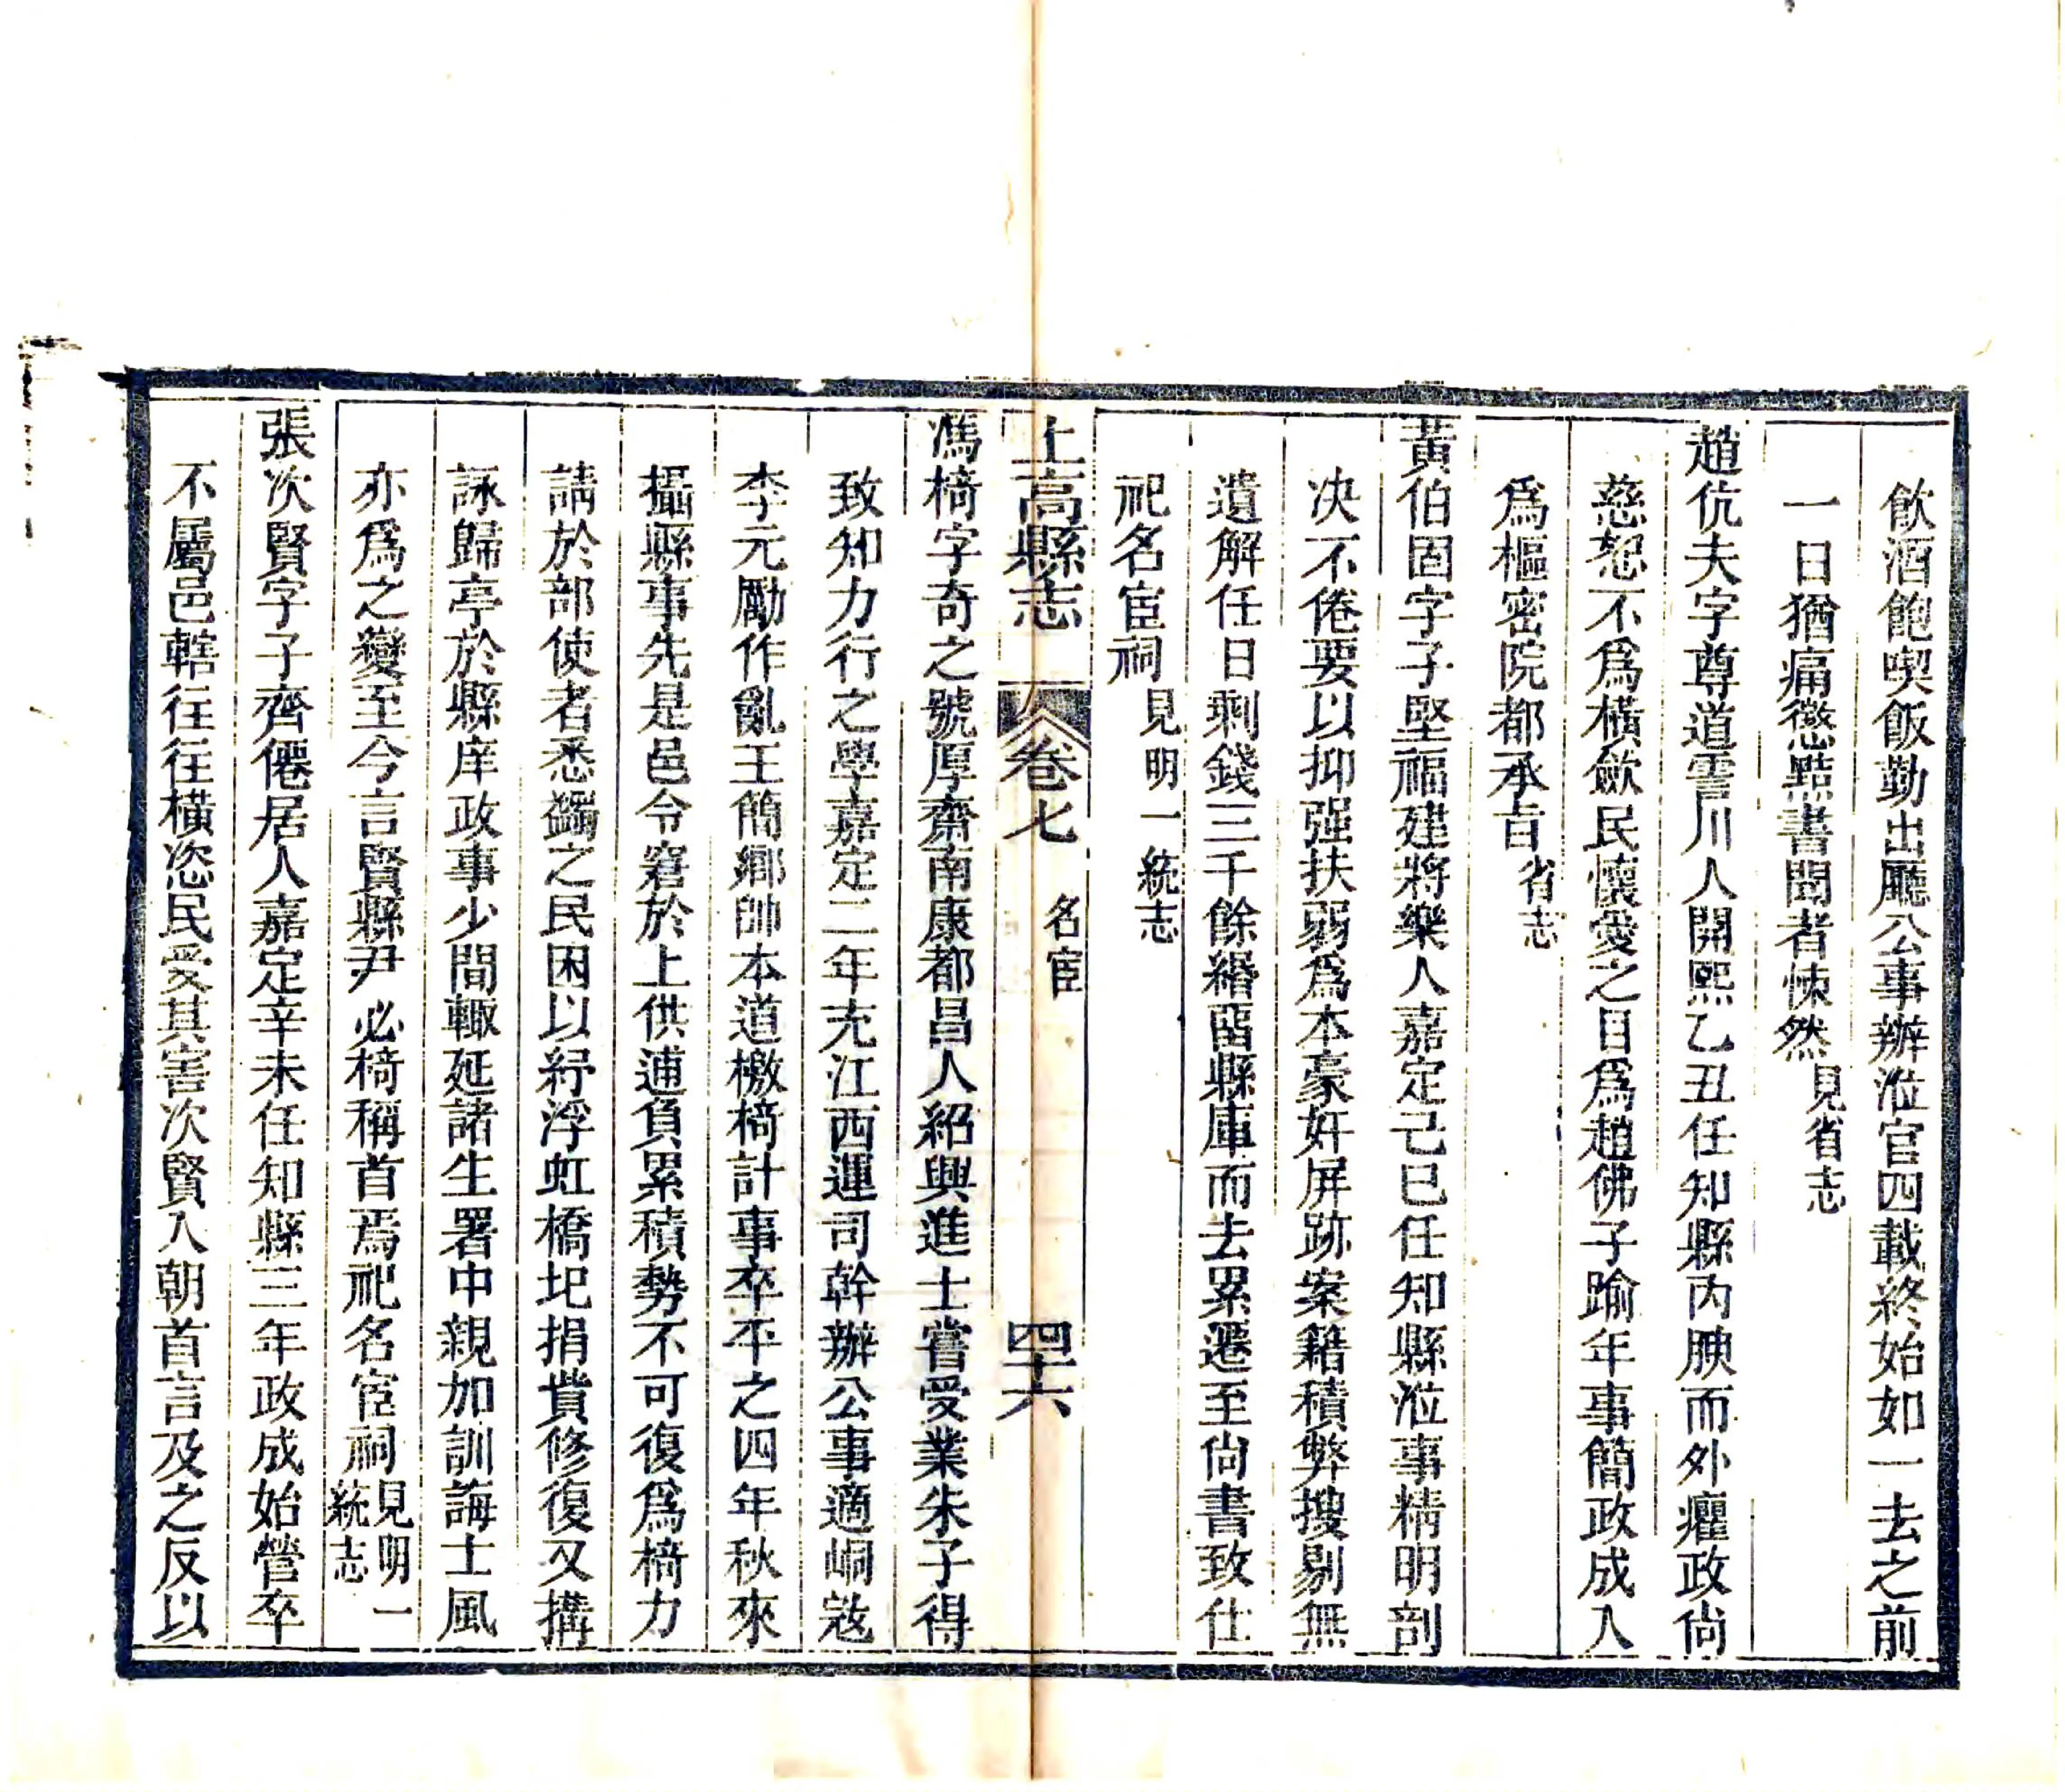 飲酒飽喫飯勤出廳公事辦涖官四載終始如一去之前
一日猶痛懲黠書聞者悚然見省志
趙伉夫字尊道霅川人開熙乙丑任知縣內腴而外癯政尙
慈恕不爲橫歛民懷愛之目爲趙佛子踰年事簡政成入
爲樞密院都承旨省志
黃伯固字子堅福建將樂人嘉定己巳任知縣涖事精明剖
决不倦要以抑强扶弱爲本豪奸屏跡案籍積弊搜剔無
遺解任日剩錢三千餘緡畱縣庫而去累遷至尙書致仕
祀名宦祠見明一統志
上高縣志 卷七 名宦 四十六
馮椅字奇之號厚齋南康都昌人紹興進士嘗受業朱子得
致知力行之學嘉定二年充江西運司幹辦公事適峒寇
李元勵作亂王簡鄉帥本道檄椅計事卒平之四年秋來
攝縣事先是邑令窘於上供逋負累積勢不可復爲椅力
請於部使者悉蠲之民困以紓浮虹橋圮捐貲修復又搆
詠歸亭於縣庠政事少間輙延諸生署中親加訓誨士風
亦爲之變至今言賢縣尹必椅稱首焉祀名宦祠見明一統志
張次賢字子齊僊居人嘉定辛未任知縣三年政成始營卒
不屬邑轄往往橫恣民受其害次賢入朝首言及之反以